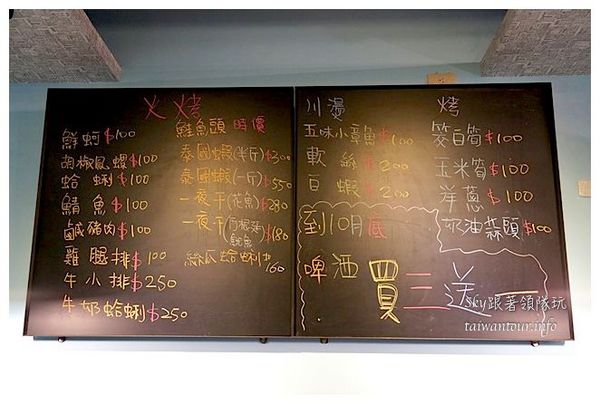 火烤
鮮蚵 $100
胡椒鳳螺 $100
蛤蜊 $100
鯖魚 $100
鹹豬肉 $100
雞腿排 $100
牛小排 $250
牛奶蛤蜊 $250
鮭魚頭 時價
泰國蝦(半斤) $300
泰國蝦(一斤) $550
一夜干(花魚) $280
一夜干 $180
絲瓜蛤蜊 $160
川燙
五味小章魚 $100
軟絲 $200
白蝦 $200
烤
筊白筍 $100
玉米筍 $100
洋蔥 $100
奶油蒜頭 $100
到10月底
啤酒 買三送一
Sky跟著領隊玩
taiwantour.info